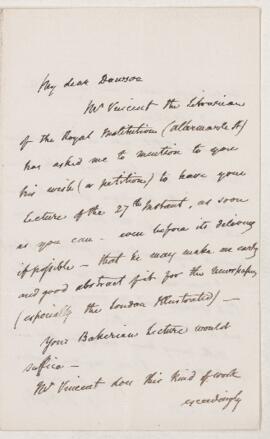 My dear Dawson
Mr Vincent the Librarian
of the Royal Institution (Albemarle St)
has asked me to mention to you
his wish (or petition) to have your
Lecture of the 27th Instant, as soon
as you can - even before its delivery
if possible - that he may make an early
and good abstract fit for the newspapers
(especially the London Illustrated) -
Your Bakerian Lecture would
suffice -
Mr Vincent does this kind of work
exceedingly